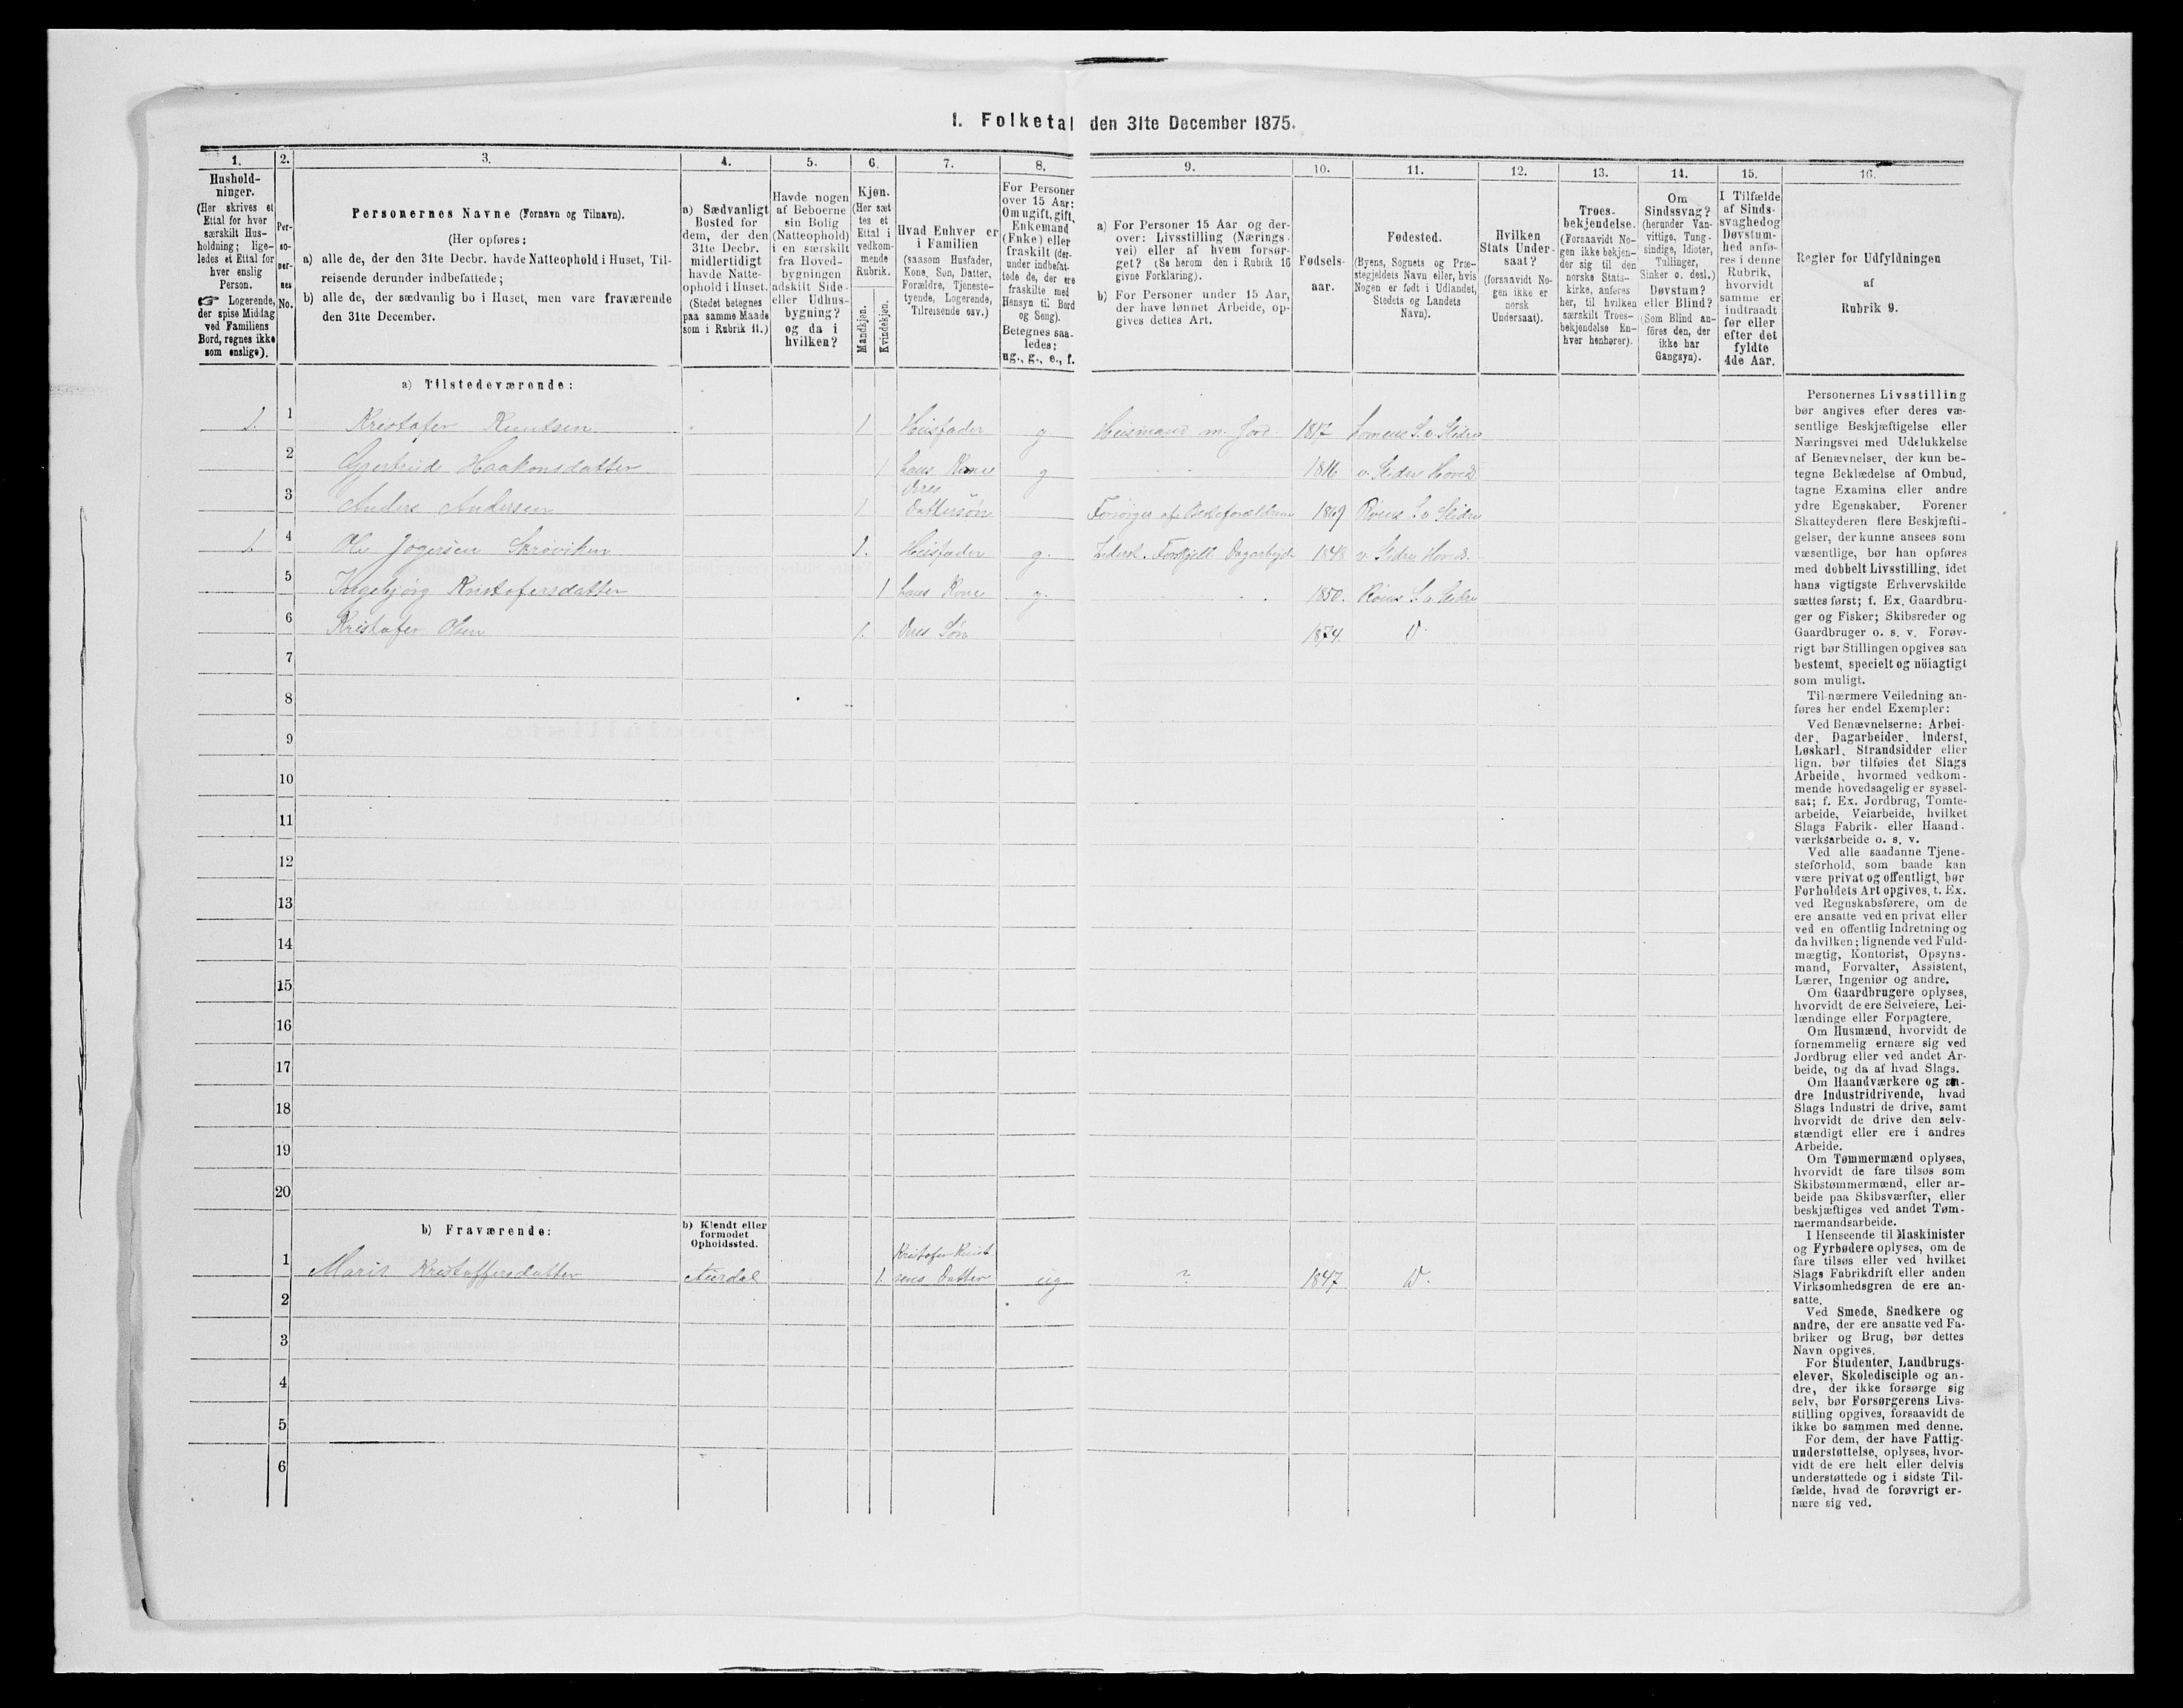 1. Folketal den 31te December 1875.
1.
2.
3.
4.
5.
6.
7.
8.
9.
10.
11.
12.
13.
14.
15.
16.
Hushold-
ninger.
(Her skrives et
Ettal for hver
særskilt Hus-
holdning; lige-
ledes et Ettal for
hver enslig
Person.
☞ Logerende,
der spise Middag
ved Familiens
Bord, regnes ikke
som enslige).
Per-
so-
ner-
nes
No.
Personernes Navne (Fornavn og Tilnavn).
(Her opføres:
a) alle de, der den 31te Decbr. havde Natteophold i Huset, Til-
reisende derunder indbefattede;
b) alle de, der sædvanlig bo i Huset, men vare fraværende
den 31te December.
a) Sædvanligt
Bosted for
dem, der den
31te Decbr.
midlertidigt
havde Natte-
ophold i Huset.
(Stedet betegnes
paa samme Maade
som i Rubrik 11.)
Havde nogen
af Beboerne
sin Bolig
(Natteophold)
i en særskilt
fra Hoved-
bygningen
adskilt Side-
eller Udhus-
bygning?
og da i
hvilken?
Kjøn.
(Her sæt
tes et
Ettal i
vedkom-
mende
Rubrik.
Mandkjøn.
Kvindekjøn.
Hvad Enhver er
i Familien
(saasom Husfader,
Kone, Søn, Datter,
Forældre, Tjeneste-
tyende, Logerende,
Tilreisende osv.)
For Personer
over 15 Aar:
Om ugift, gift,
Enkemand
(Enke) eller
fraskilt (der-
under indbefat-
tede de, der ere
fraskilte med
Hensyn til Bord
og Seng).
Betegnes saa-
ledes:
ug., g., e., f.
a) For Personer 15 Aar og der-
over: Livsstilling (Nærings-
vei) eller af hvem forsør-
get? (Se herom den i Rubrik 16
givne Forklaring).
b) For Personer under 15 Aar,
der have lønnet Arbeide, op-
gives dettes Art.
Fødsels-
aar.
Fødested.
(Byens, Sognets og Præ-
stegjeldets Navn eller, hvis
Nogen er født i Udlandet,
Stedets og Landets
Navn).
Hvilken
Stats Under-
saat?
(forsaavidt No-
gen ikke er
norsk
Undersaat).
Troes-
bekjendelse.
(Forsaavidt No-
gen ikke bekjen-
der sig til den
norske Stats-
kirke, anføres
her, til hvilken
særskilt Troes-
bekjendelse En-
hver henhører).
Om
Sindssvag?
(herunder Van-
vittige, Tung-
sindige, Idioter,
Tullinger,
Sinker o. desl.)
Døvstum?
eller Blind?
(Som Blind an-
føres den, der
ikke har
Gangsyn).
I Tilfælde
af Sinds-
svaghed og
Døvstum-
hed anfø-
res i denne
Rubrik,
hvorvidt
samme er
indtraadt
før eller
efter det
fyldte
4de Aar.
Regler for Udfyldningen
af
Rubrik 9.
a) Tilstedeværende:
1. 1 Kristofer Knudsen 1 Huusfader g Huusmand m. Jord 1817 Lomens S. v. Slidre
2 Gjertrude Haakonsdatter 1 hans Kone g 1816 v. Slidre Hoveds
3 Anders Andersen 1 deres
Dattersøn Forsørges af Bedsteforældrene 1869 Røens S. v. Slidre
1. 4 Ole Jøgersen 1. Huusfader g. Inderst. 1848 v. Slidre Hoveds.
5 Ingebjørg Kristofersdatter 1 hans Kone g. 1850. Røens S. v. Slidre
6 Kristofer Olsen 1. deres Søn 1874.
7
8
9
10
11
12
13
14
15
16
17
18
19
20
b) Fraværende:
b) Kjendt eller
formodet
Opholdssted.
1 Marit Kristoffersdatter Aurdal 1. Kristofer Knud-
sens Datter ug ? 1847
2
3
4
5
6
Personernes Livsstilling
bør angives efter deres væ-
sentlige Beskjæftigelse eller
Næringsvei med Udelukkelse
af Benævnelser, der kun be-
tegne Beklædelse af Ombud,
tagne Examina eller andre
ydre Egenskaber. Forener
Skatteyderen flere Beskjæfti-
gelser, der kunne ansees som
væsentlige, bør han opføres
med dobbelt Livsstilling, idet
hans vigtigste Erhvervskilde
sættes først; f. Ex. Gaardbru-
ger og Fisker; Skibsreder og
Gaardbruger o. s. v. Forøv-
rigt bør Stillingen opgives saa
bestemt, specielt og nöiagtigt
som muligt.
Til nærmere Veiledning an-
føres her endel Exempler:
Ved Benævnelserne: Arbei-
der, Dagarbeider, Inderst,
Løskarl, Strandsidder eller
lign. bør tilføies det Slags
Arbeide, hvormed vedkom-
mende hovedsagelig er syssel-
sat; f. Ex. Jordbrug, Tomte-
arbeide, Veiarbeide, hvilket
Slags Fabrik- eller Haand-
værksarbeide o. s. v.
Ved alle saadanne Tjene-
steforhold, som baade kan
være privat og offentligt, bør
Forholdets Art opgives, t. Ex.
ved Regnskabsførere, om de
ere ansatte ved en privat eller
ved en offentlig Indretning og
da hvilken; lignende ved Fuld-
mægtig, Kontorist, Opsyns-
mand, Forvalter, Assistent,
Lærer, Ingeniør og andre.
Om Gaardbrugere oplyses,
hvorvidt de ere Selveiere, Lei-
lændinge eller Forpagtere.
Om Husmænd, hvorvidt de
fornemmelig ernære sig ved
Jordbrug eller ved andet Ar-
beide, og da af hvad Slags.
Om Haandværkere og an-
dre Industridrivende, hvad
Slags Industri de drive, samt
hvorvidt de drive den selv-
stændigt eller ere i andres
Arbeide.
Om Tømmermænd oplyses,
hvorvidt de fare tilsøs som
Skibstømmermænd, eller ar-
beide paa Skibsværfter, eller
beskjæftiges ved andet Tøm-
mermandsarbeide.
I Henseende til Maskinister
og Fyrbødere oplyses, om de
fare tilsøs eller ved hvilket
Slags Fabrikdrift eller anden
Virksomhedsgren de ere an-
satte.
Ved Smede, Snedkere og
andre, der ere ansatte ved Fa-
briker og Brug, bør dettes
Navn opgives.
For Studenter, Landbrugs-
elever, Skoledisciple og an-
dre, der ikke forsørge sig
selv, bør Forsørgerens Livs-
stilling opgives, forsaavidt de
ikke bo sammen med denne.
For dem, der have Fattig-
understøttelse, oplyses, hvor-
vidt de ere helt eller delvis
understøttede og i sidste Til-
fælde, hvad de forøvrigt er-
nære sig ved.